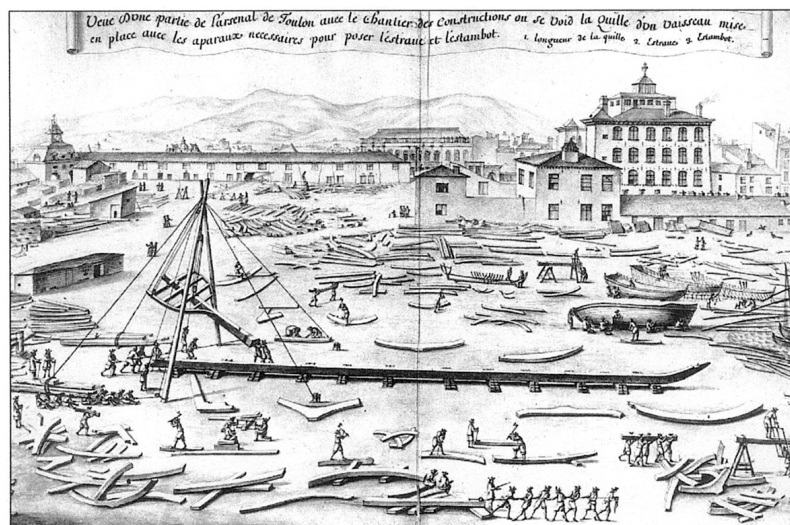 Veue d'vne partie de l'arsenal de Toulon auec le Chantier des Constructions ou se void la Quille d'vn Vaisseau mise
en place auec les aparaux necessaires pour poser l'estraue et l'estambot. 1. longueur de la quille 2. Estraue 3. Estambot.